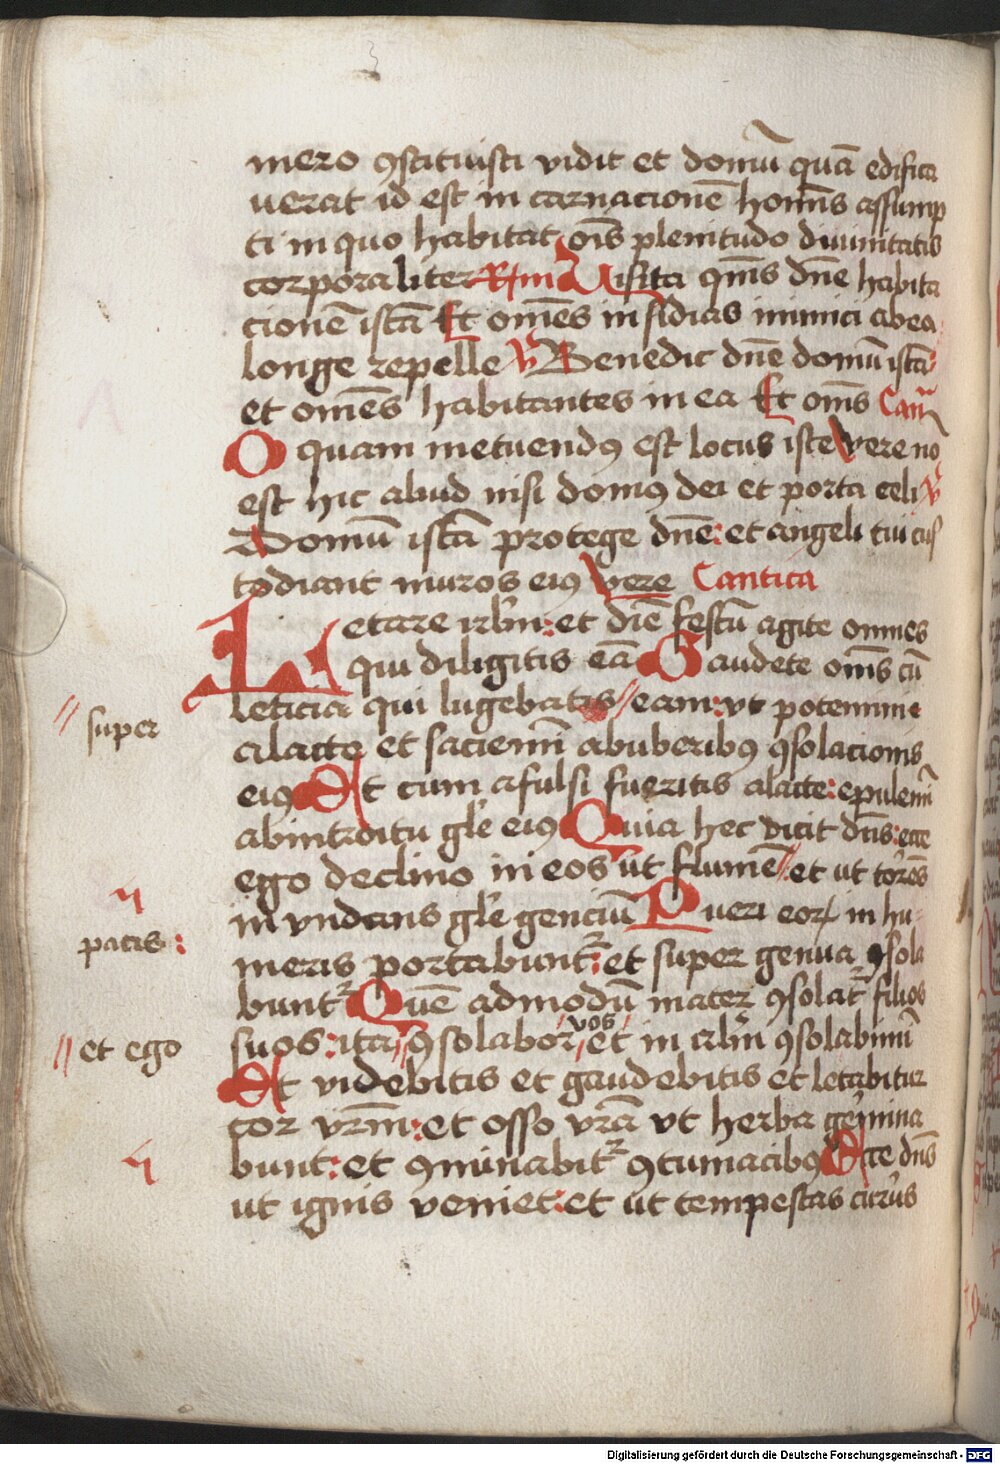 mero ꝯstituisti vidit et domū quā edifica
uerat id est in carnacionē homīs assump
ti in quo habitat oīs plenitudo diuinitatis
corporaliter Uisita qm̄s dn̄e habita
cionē istā Et omēs insidias inimici abea
longe repelle ℣ Benedic dn̄e domū istā
et omēs habitantes in ea Et om̄s
O quam metuendꝯ est locus iste vere nō
est hic aliud nisi domꝯ dei et porta celi ℣
Domū istā protege dn̄e: et angeli tui cus
todiant muros eiꝯ vere Cantica
Letare irl̄m: et diē festū agite omnes
qui diligitis eā Gaudete om̄s cū
leticia qui lugebatis // eam: vt potemini
alacte et saciemī abuberibꝯ ꝯsolacionis
// super
eiꝯ Et cum afulsi fueritis alacte: epulemī
abintroitu gl̄e eiꝯ Quia hec dicit dn̄s: ecce
ego declino in eos ut flumē // et ut torēs
in vndans gl̄e genciū Pueri eoꝝ in hu
patis:
meris portabuntr̄: et super genua ꝯsola
buntr̄ Quē admodū mater ꝯsolatr̄ filios
suos: ita // ꝯsolabor vos // et in irl̄m ꝯsolabimī
// et ego
Et videbitis et gaudebitis et letabitur
cor vr̄m: et ossa vr̄a vt herba germina
bunt: et ꝯminabitr̄ ꝯtumacibꝯ Ecce dn̄s
ut ignis veniet: et ut tempestas currus
Digitalisierung gefördert durch die Deutsche Forschungsgemeinschaft - DFG